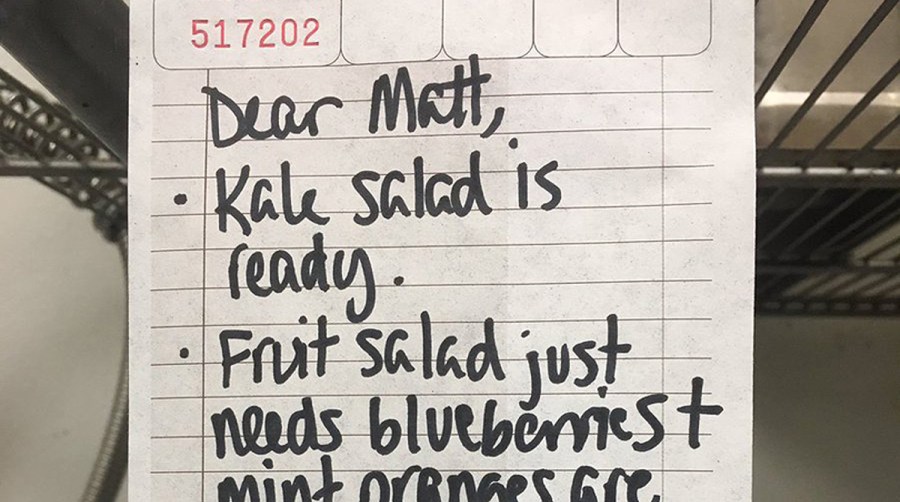 517202
Dear Matt,
· Kale salad is
ready.
· Fruit salad just
needs blueberries +
mint oranges are